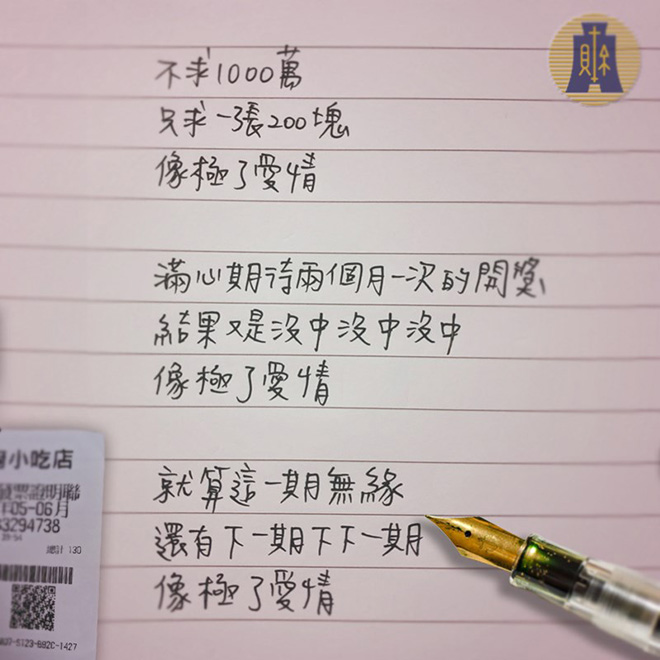 財
不求1000萬
只求一張200塊
像極了愛情
滿心期待兩個月一次的開獎
結果又是沒中沒中沒中
像極了愛情
就算這一期無緣
還有下一期下下一期
像極了愛情
小吃店
發票證明聯
年05-06月
3294738
總計 130